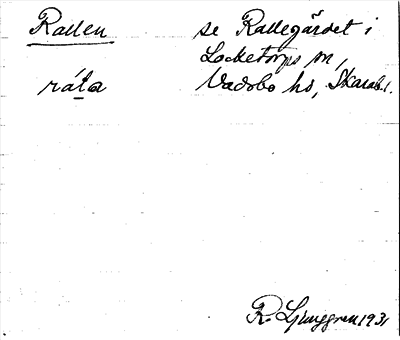 Rallen se Rallegårdet i
Locketorps sn,
ráLa Vadsbo hd, Skarab.l.
R. Ljunggren 1931